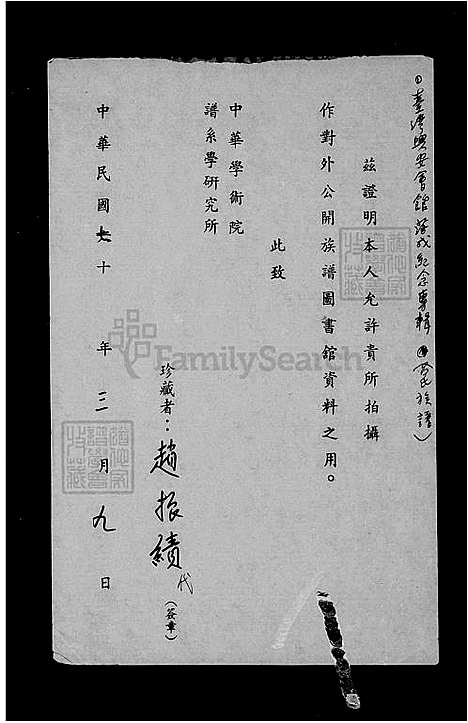 茲證明本人允許貴所拍攝
①臺灣興安會館落成紀念專輯
氏族譜)
作對外公開族譜圖書館資料之用。
此致
中華學術院
譜系學研究所
珍藏者:趙振績代(簽章)
中華民國七十年三月九日
FamilySearch